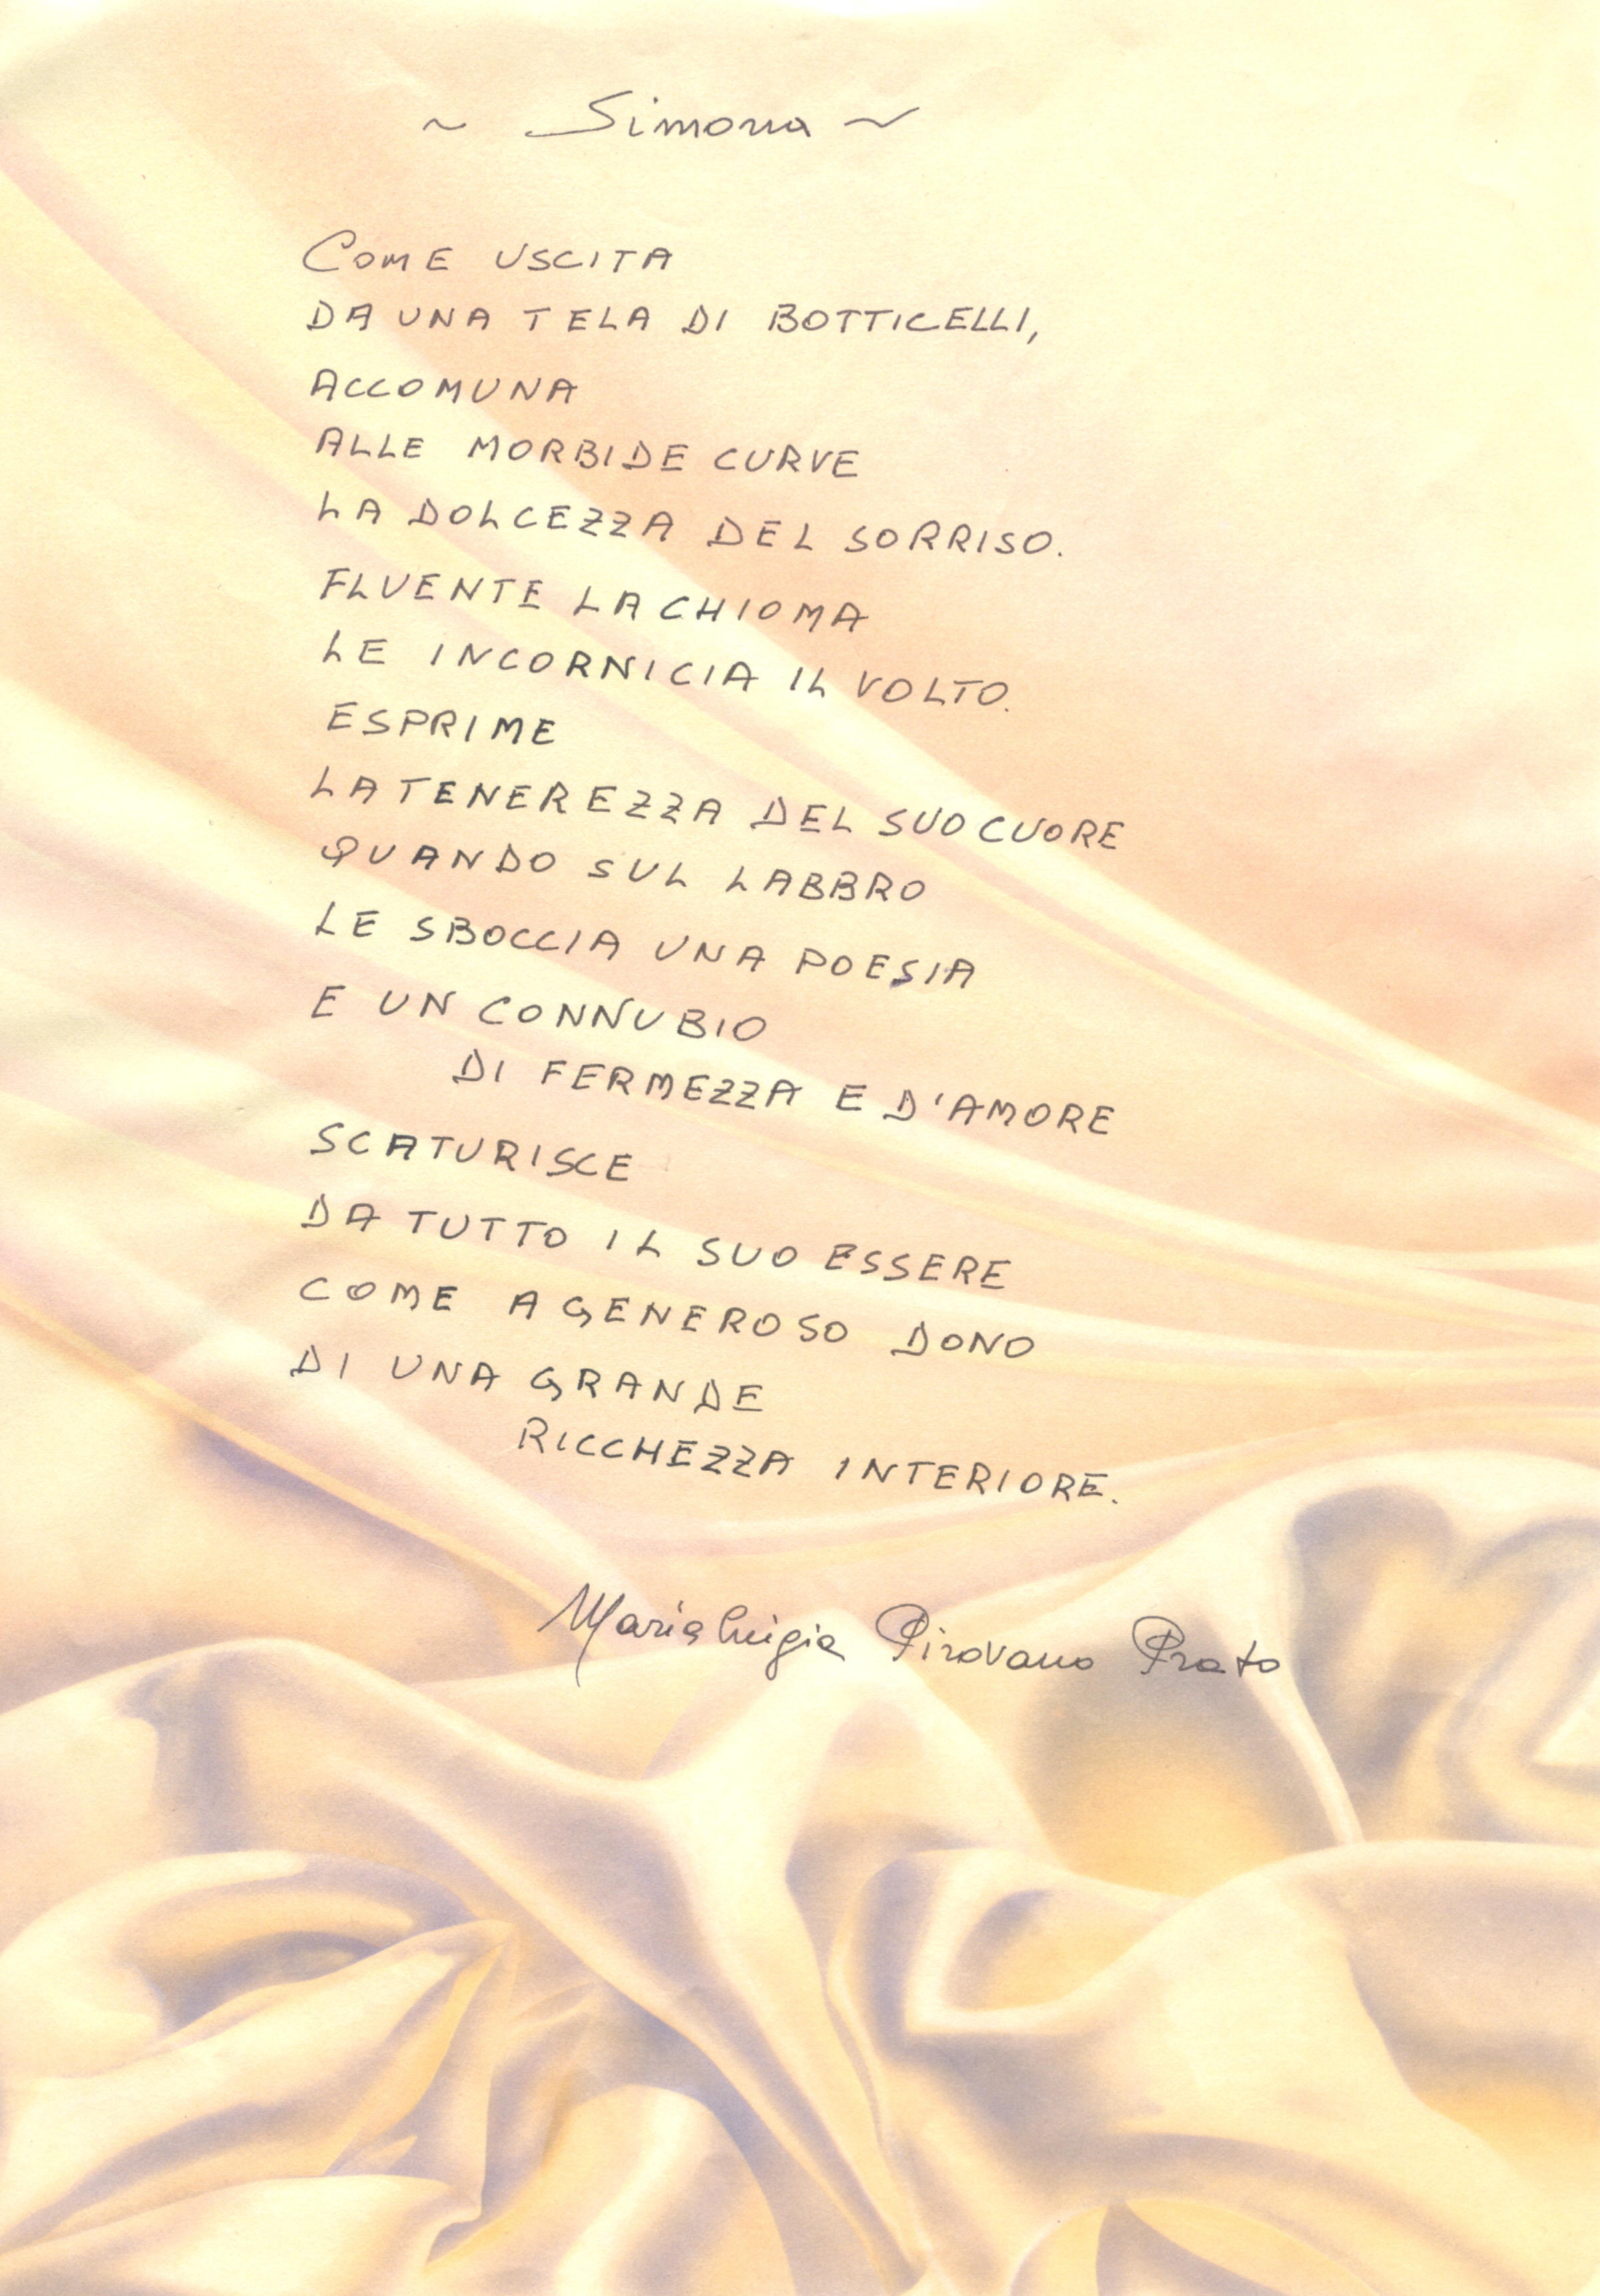 ~ Simona ~
COME USCITA
DA UNA TELA DI BOTTICELLI,
ACCOMUNA
ALLE MORBIDE CURVE
LA DOLCEZZA DEL SORRISO.
FLUENTE LA CHIOMA
LE INCORNICIA IL VOLTO.
ESPRIME
LA TENEREZZA DEL SUO CUORE
QUANDO SUL LABBRO
LE SBOCCIA UNA POESIA
E UN CONNUBIO
DI FERMEZZA E D'AMORE
SCATURISCE
DA TUTTO IL SUO ESSERE
COME A GENEROSO DONO
DI UNA GRANDE
RICCHEZZA INTERIORE.
Maria Luigia Pirovano Prato